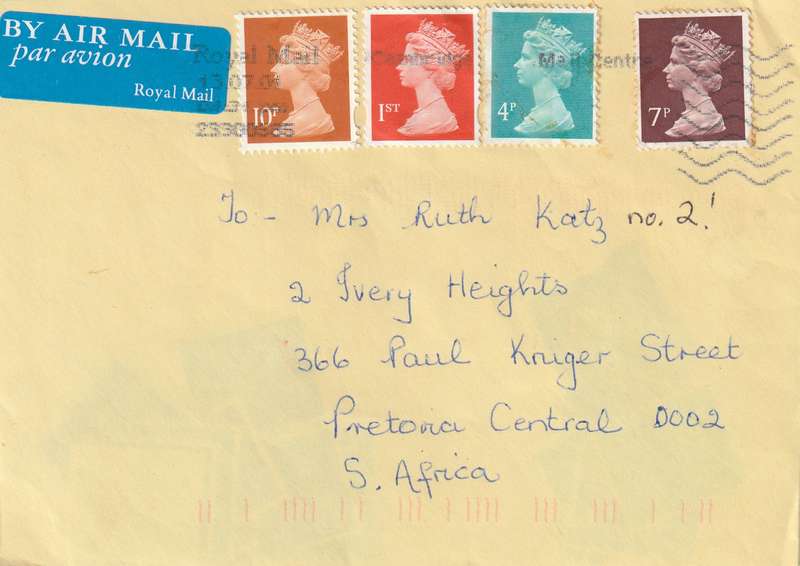 BY AIR MAIL
par avion
Royal Mail
Royal Mail
Mail Centre
10P
1ST
4P
7P
To:- Mrs Ruth Katz no. 2!
2 Ivery Heights
366 Paul Kruger Street
Pretoria Central 0002
S. Africa